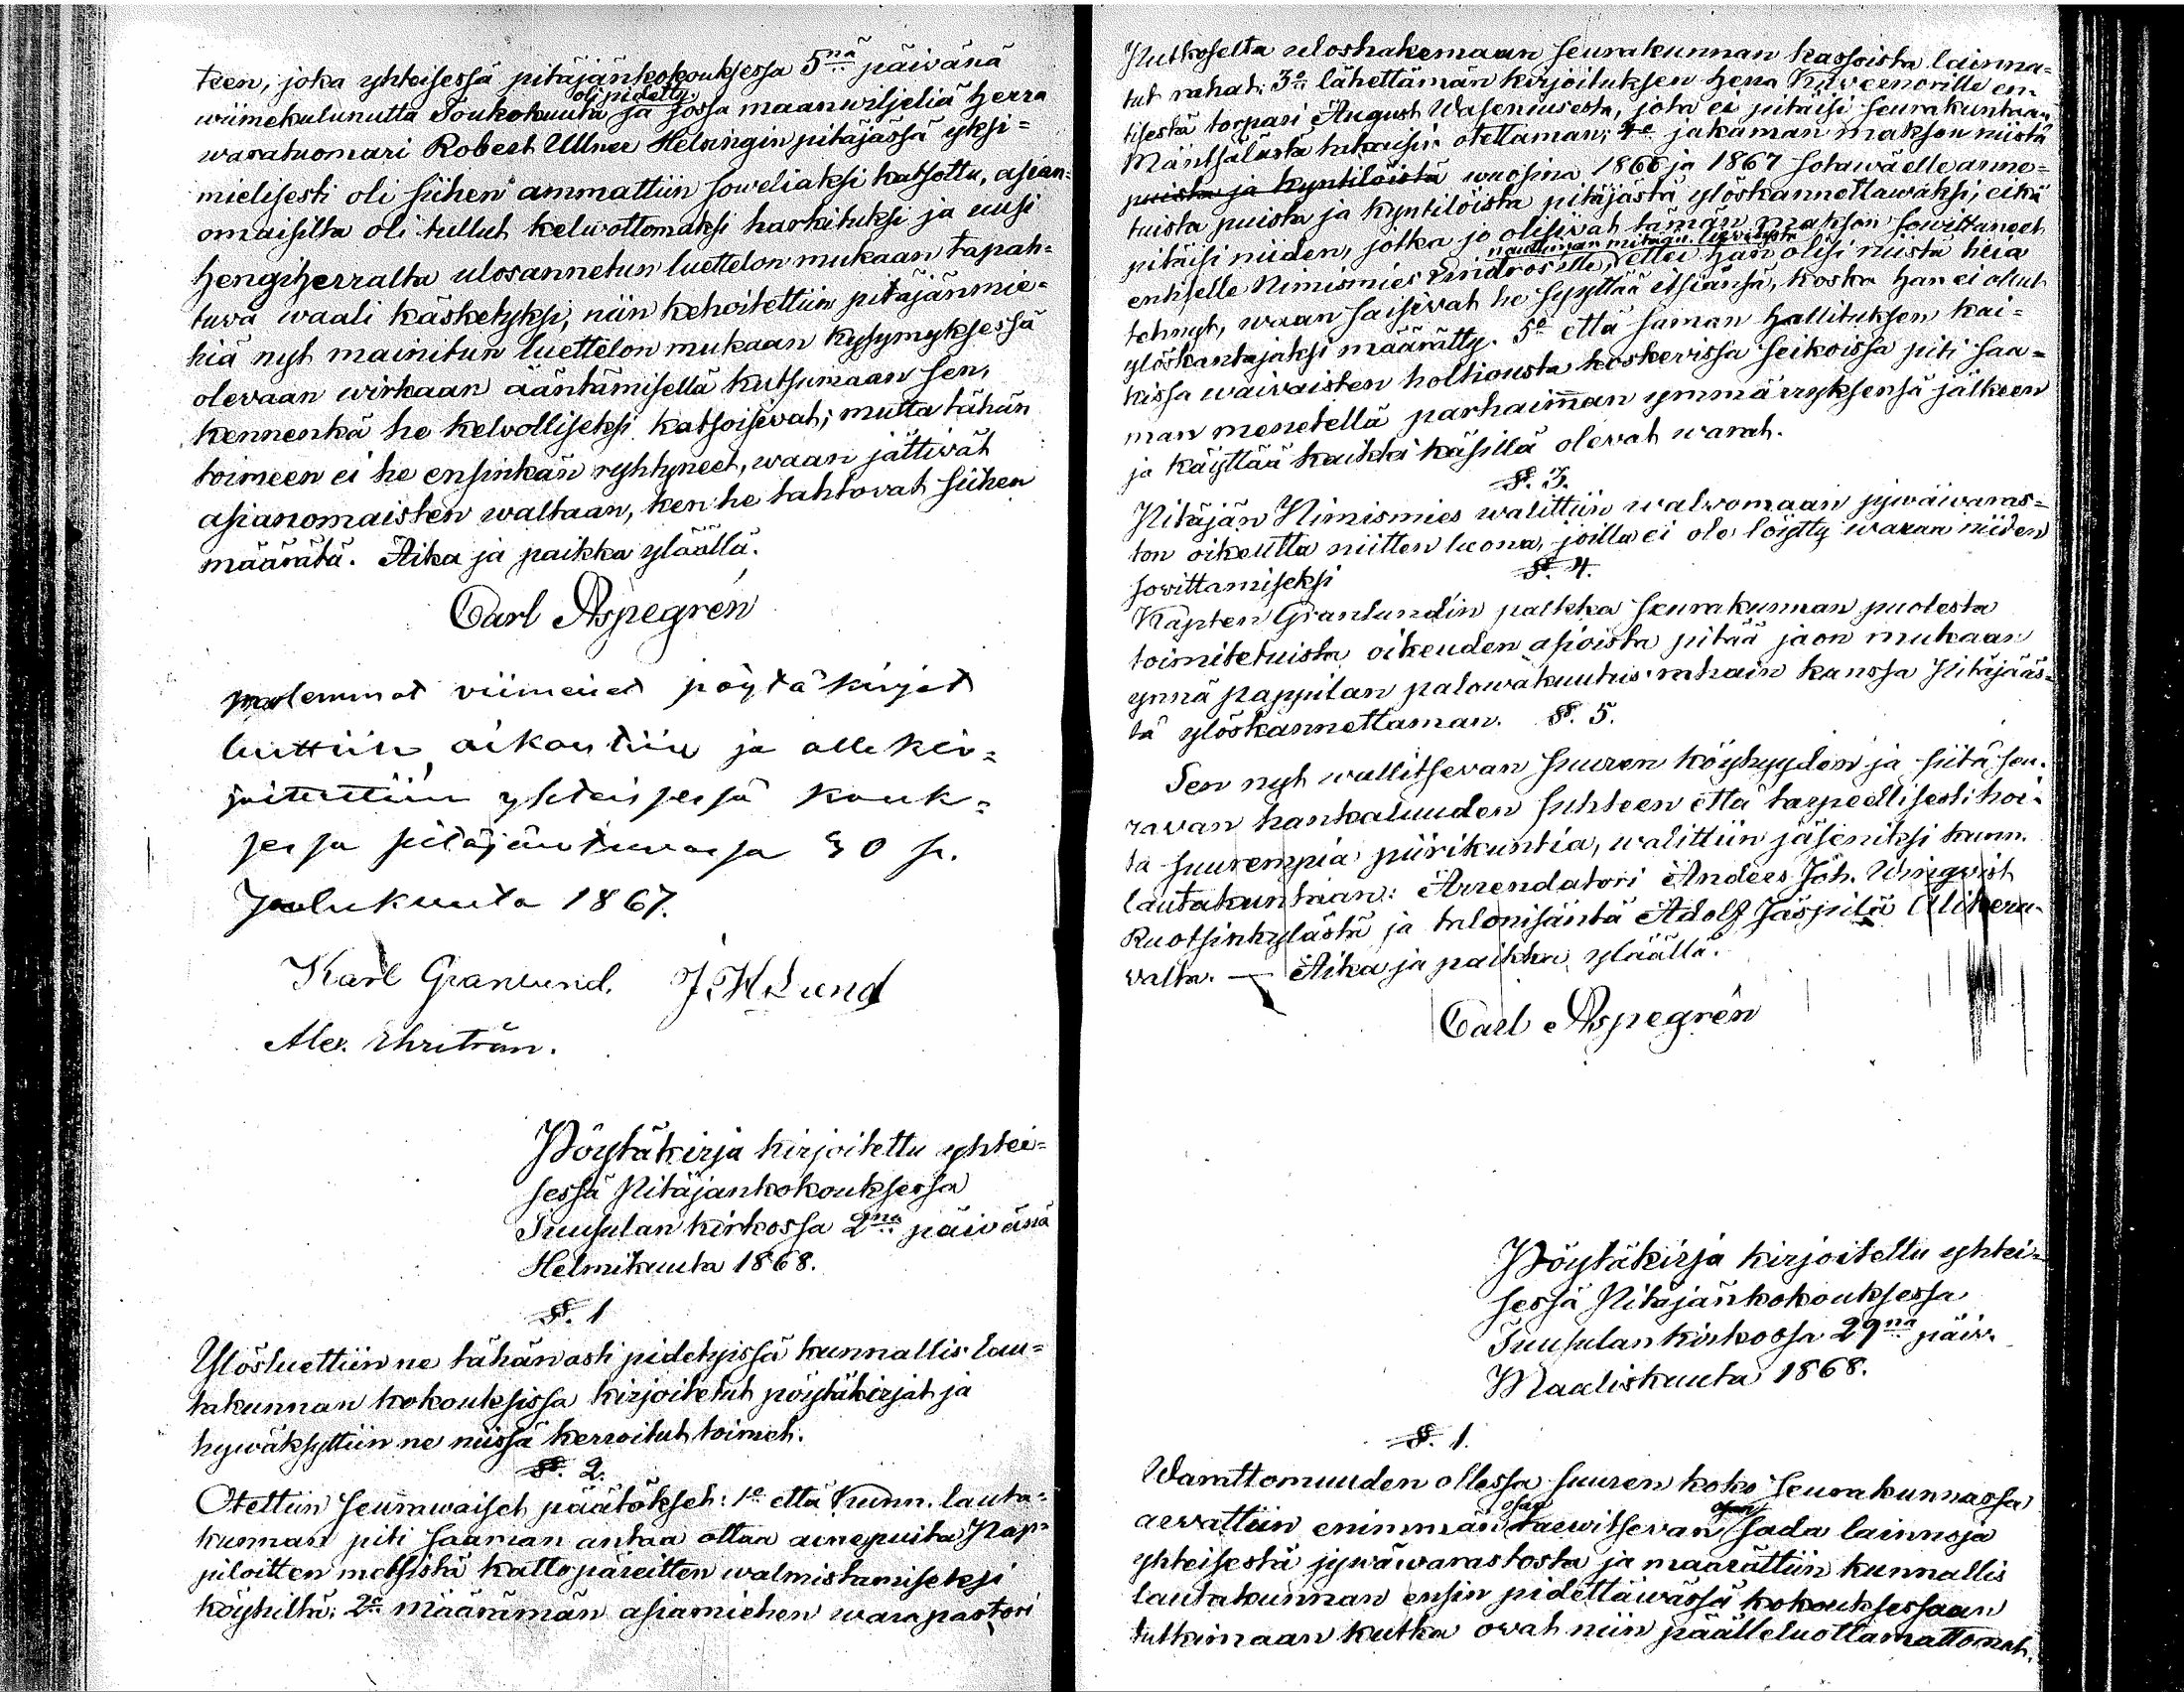 teen, joka yhteisessä pitäjänkokouksessa 5nä päivänä
oli pidetty.
wiimekulunutta Toukokuuta ja jossa maanwiljeliä Herra
waratuomari Robert Ullner Helsingin pitäjässä yksi=
mielisesti oli siihen ammattiin soweliaksi katsottu, asian=
omaisilta oli tullut kelwottomaksi harkituksi ja uusi
Hengiherralta ulosannetun luettelon mukaan tapah=
tuva waali käsketyksi, niin kehoitettiin pitäjänmie=
hiä nyt mainitun luettelon mukaan kysymyksessä
olevaan wirkaan ääntämisellä kutsumaan sen,
kennenkä he kelvolliseksi katsoisivat; mutta tähän
toimeen ei he ensinkän ryhtyneet, waan jättivät
asianomaisten waltaan, ken he tahtovat siihen
määrätä. Aika ja paikka ylläällä.
Carl Aspegrén
molemmat viimeiset pöytäkirjat
luettiin, oikaistiin ja allekir=
joitettiin yhteisessä kouk=
sessa pitäjäntuvassa 30 p.
Joulukuuta 1867.
Karl Granlund. J. H. Lund
Alex. Ehrström.
Pöytäkirja kirjoitettu yhtei=
sessä Pitäjänkokouksessa
Tuusulan kirkossa 2na päivänä
Helmikuuta 1868.
§. 1
Ylösluettiin ne tähänasti pidetyissä kunnallis lau=
takunnan kokouksissa kirjoitetut pöytäkirjat ja
hywäksyttiin ne niissä kerroitut toimet.
§. 2.
Otettiin seurawaiset päätökset: 1o että kunn. lauta=
kunnan piti saaman antaa ottaa ainepuita Pap=
piloitten metsistä kattopäreitten walmistamiseksi
köyhiltä; 2o määrämän asiamiehen warapastori
Putkoselta uloshakemaan seurakunnan kassoista lainna=
tut rahat; 3o lähettämän kirjoituksen Herra Kuvernorille en=
tisestä torpari August Waseniusesta, jota ei pitäisi seurakuntaan
Mäntsälästä takaisin otettaman; 4o jakaman makson niistä
puista ja kyntilöistä wuosina 1866 ja 1867 sotawäelle anne=
tuista puista ja kyntilöista pitäjästä ylöskannettawaksi, eikä
pitäisi niiden, jotka jo olisivat tämän makson sowittaneet
nauttiman mitään liewitystä
entiselle Nimismies Lindroosille, ettei hän olisi niistä heiä
tehnyt, waan saisivat he syyttää itsiänsä, koska hän ei ollut
ylöskantajaksi määrätty. 5o että saman Hallituksen kai=
kissa waivaisten holhousta koskevissa seikoissa piti saa=
man menetellä parhaimman ymmärryksensä jälkeen
ja käyttää kaikki käsillä olevat warat.
§. 3.
Pitäjän Nimismies walittiin walwomaan jywäwaras=
ton oikeutta niitten luona, joilla ei ole löytty waraa niiden
sowittamiseksi
§. 4.
Kapten Granlundin palkka seurakunnan puolesta
toimitetuista oikeuden asioista pitää jaon mukaan
ynnä pappilan palowakuutus-rahain kanssa Pitäjääs=
tä ylöskannettaman. §. 5.
Sen nyt wallitsevan suuren köyhyyden ja siitä seu=
ravan hankaluuden suhteen että tarpeellisesti hoi=
ta suurempia piirikuntia, walittiin jäseniksi kunn.
lautakuntaan: Arrendatori Anders Joh. Wingvist
Ruotsinkylästä ja talonisäntä Adolf Jäspilä Alikera=
valta. — Aika ja paikka ylläällä.
Carl Aspegrén
Pöytäkirja kirjoitettu yhtei=
sessä Pitäjänkokouksessa
Tuusulan kirkossa 29na päiv.
Maaliskuuta 1868.
§. 1.
Warattomuuden ollessa suuren koko seurakunnassa
arvattiin enimmän osan tarwitsevan saada lainnoja
yhteisestä jywäwarastosta ja määrättiin kunnallis
lautakunnan ensin pidettäwässä kokouksessaan
tutkimaan kutka ovat niin päälleluottamattomat,